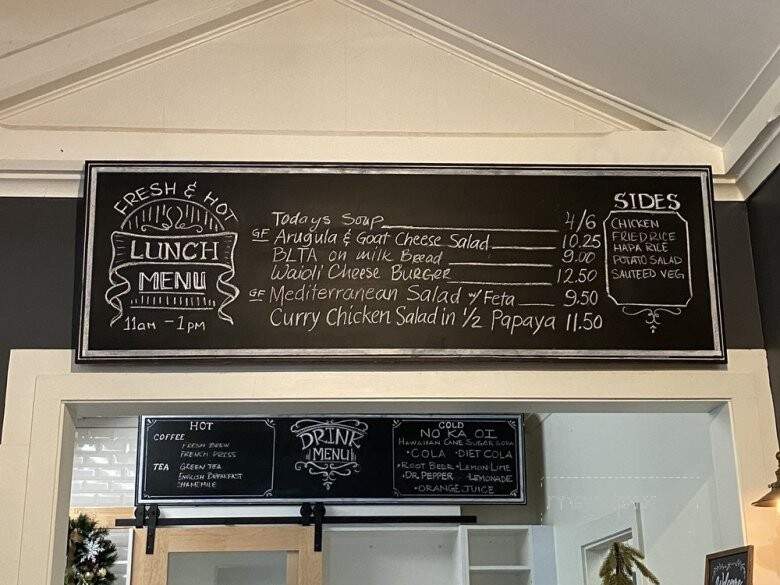 FRESH & HOT
LUNCH
MENU
11am - 1pm
Todays Soup 4/6
GF Arugula & Goat Cheese Salad 10.25
BLTA on milk Bread 9.00
Waioli Cheese Burger 12.50
GF Mediterranean Salad w/ Feta 9.50
Curry Chicken Salad in 1/2 Papaya 11.50
SIDES
CHICKEN
FRIED RICE
HAPA RICE
POTATO SALAD
SAUTEED VEG
HOT
COFFEE
FRESH BREW
FRENCH PRESS
TEA GREEN TEA
ENGLISH BREAKFAST
CHAMEMILE
DRINK
MENU
COLD
NO KA OI
HAWAIIAN CANE SUGER SODA
•COLA •DIET COLA
•ROOT BEER •LEMON LIME
•DR. PEPPER LEMONADE
•ORANGE JUICE
Welcome